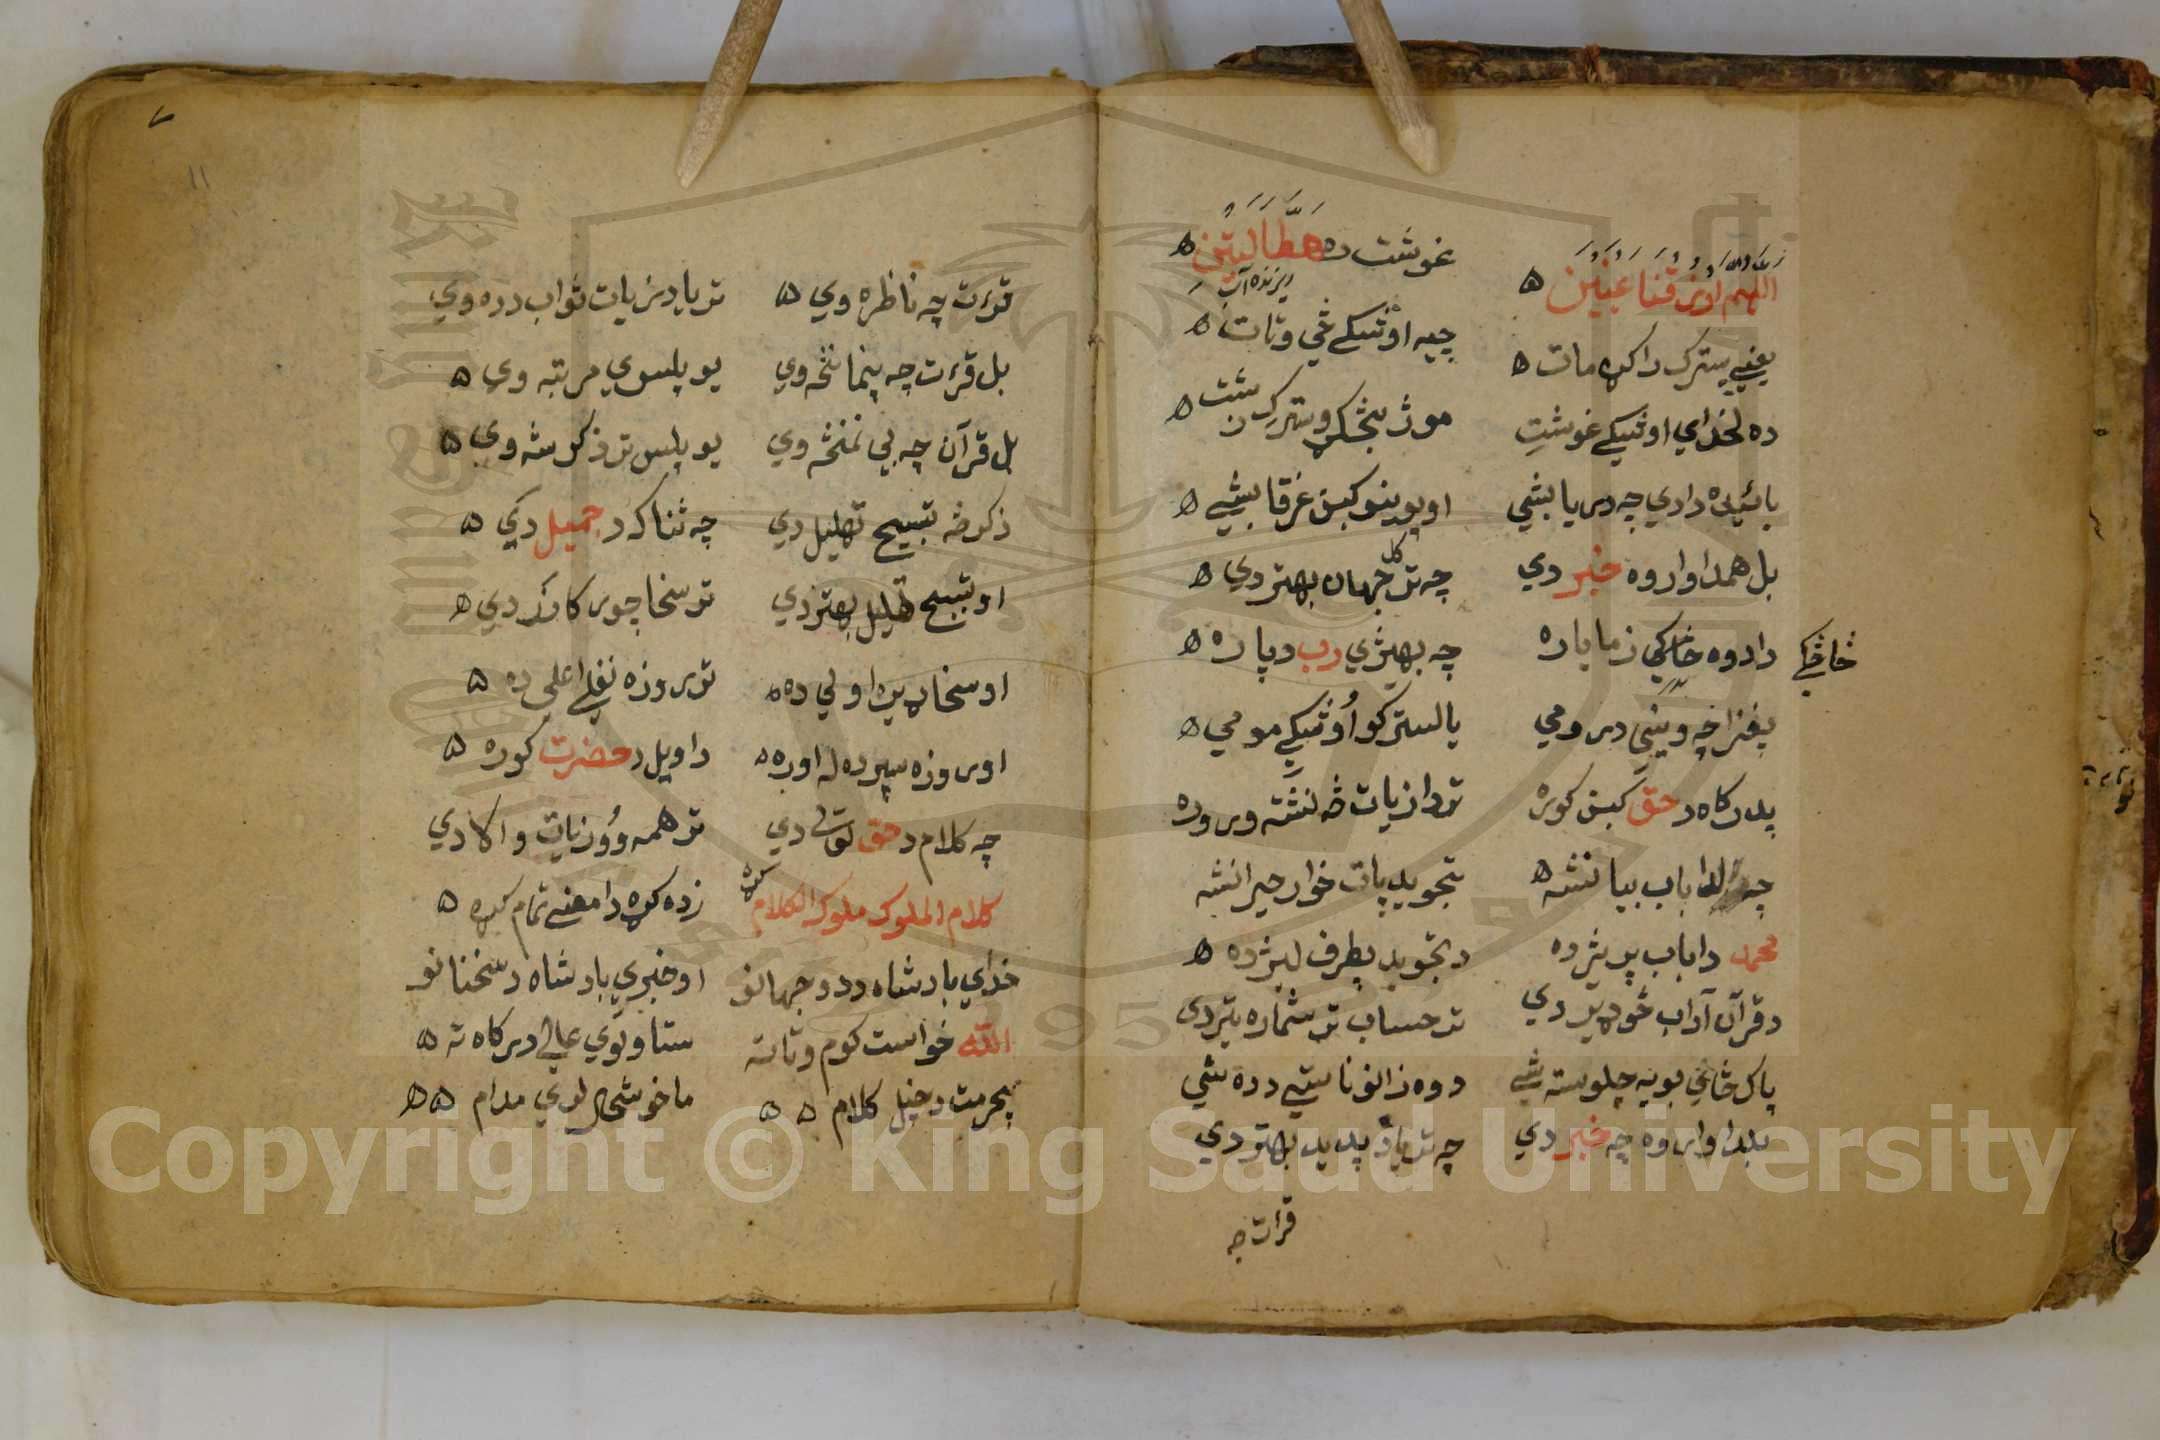 اللهم ارزقنا عينين ه غوښت ده هطالتين ه
يعنې سترګي راکړه مات ه چيه اوښکے ځي وتات ه
ده لخداي اوښيکے غوښتِ موږ بښکړو سترګِ شت ه
بائيده دادي چه دريا بشي او پورينو کښ غرقا بشيے ه
بل همدا واروه خبر دي چه تر کل جهان بهتر دي ه
دادوه څاڅکي زما ياره چه بهيږي رب دپاره ه
څاڅکے
يغزا چه وينې درومي يا لسترکو اُوښکے مومي ه
پدرکاه د حق کښ کوره تر دا زيات څه نشته وروره
چه دا باب بيا نشه ه تجويد پات خوار حيرانشه
محمد دا باب پريږده د تجويد پطرف ليږده ه
د قرآن آداب څو ډير دي تر حساب تر شماره تير دي
پاک ځاي بويه چلوسته شي دوه زانو ناستي دره شي
بلدا واروه چه خبر دي چه تر ياد پديد بهتر دي
قرات چه
قرءت چه ناظره وي ه تر يادئ زيات ثواب دره وي
بل قرءت چه پنمانځه وي يو پلسوي مرتبه وي ه
بل قرآن چه بي نمنځه وي يو پلس تر ذکر شه وي ه
ذکر څه تسبيح تهليل دي چه ثنا که د جميل دي ه
او تسبيح تهليل بهتر دي تر سخا چور کاندر دي ه
او سخا ډيره اولي ده ه تر روزه نفلے اعلی ده ه
اور روزه سپر ده له اوره ه دا ويل د حضرت کوره ه
چه کلام د حق تعالی دي تر همه وُو زيات والا دي
کلام الملوک ملوک الکلام کړه زده کړه دا معنے تمام کړه ه
خداي بادشاه ددو جهانو او خبري بادشاه د سخنانو
الله خواست کوم وتاته ستا ولوي عالي درکاه ته ه
بحرمت د خپل کلام ه ه ما خوشحال لري مدام ه ه
١١
Copyright © King Saud University